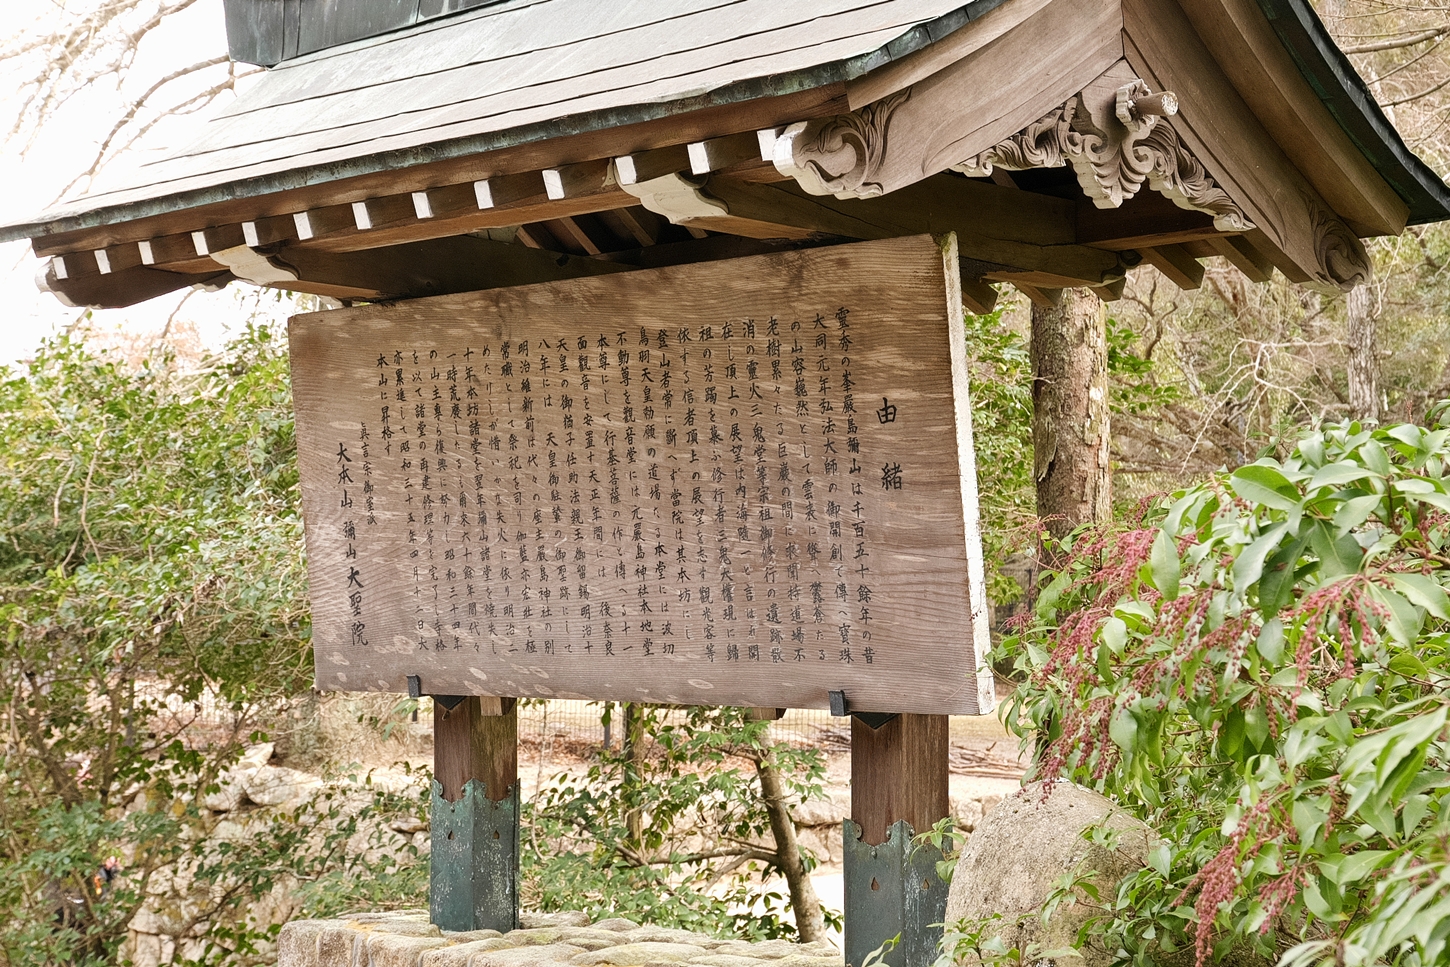 由緒
霊秀の峯嚴島彌山は千百五十餘年の昔
大同元年弘法大師の御開創で傳へ宝珠
の山容巍然として雲表に聳え鬱蒼たる
老樹累々たる巨巌の間に求聞持道場不
消の霊火三鬼堂等宗祖御修行の遺跡散
在し頂上の展望は内海随一と言はれ開
祖の芳躅を慕ふ修行者三鬼大権現に歸
依する信者頂上の展望を志す観光客等
登山者常に断へず當院は其本坊にし
鳥羽天皇勅願の道場たる本堂には波切
不動尊を觀音堂には元嚴島神社本地堂
本尊にして行基菩薩の作と傳へる十一
面觀音を安置す天正年間には 後奈良
天皇の御猶子任助法親王御留錫明治十
八年には 天皇御駐輦の御聖跡にして
明治維新前は代々の座主嚴島神社の別
當職として祭祀を司り伽藍亦宏壮を極
めたりしが惜いかな失火に依り明治二
十年本坊諸堂を翌年彌山諸堂を焼失し
一時荒廃したるも爾来六十餘年間代々
の山主専ら復興に努力し昭和三十四年
を以て諸堂の再建修理等を完了し寺格
亦累進して昭和三十五年四月十二日大
本山に昇格す
真言宗御室派
大本山 彌山大聖院